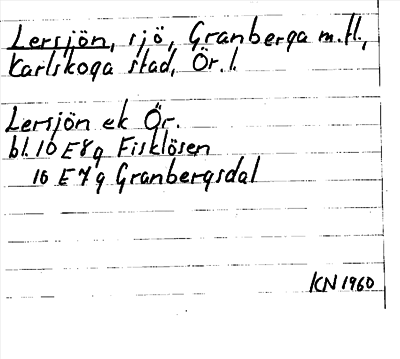 Lersjön, sjö, Granberga m.fl.,
Karlskoga stad, Ör.l.
Lersjön ek Ör.
bl. 10 E8g Fisklösen
10 E7g Granbergsdal
KN 1960